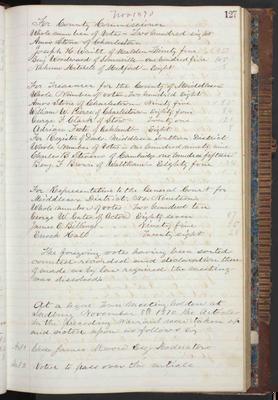 Nov 1870
127
For County Commissioner
Whole number of Votes Two hundred eight
Amos Stone of Charlestown
Joseph H. Waitt of Malden Ninety five
Benj Woodward of Somerville one hundred five
Eight
For Treasurer for the County of Middlesex
Whole Number of votes Two hundred Eight
Amos Stone of Charlestown Ninety five
William W. Pierce of Charlestown eighty four
George P. Clark of Stow Twenty one
Adrian Foote of Ashmont Eight
For Register of Deeds Middlesex Southern District
Whole Number of Votes one hundred ninety nine
Charles B. Stevens of Cambridge one hundred fifteen
Benj. F. Brown of Waltham Eighty four
For Representative to the General Court for
Middlesex District
Whole number of votes Two hundred ten
George W. Cutler of Acton Eighty seven
James C. Billings Ninety five
Enoch Hall Twenty eight
The foregoing votes having been sorted
counted recorded and declaration there
of made as by law required the meeting
was dissolved
At a legal Town Meeting holden at
Sudbury November 8th 1870 the Articles
in the preceding Warrant were taken up
and acted upon as follows viz
Art 1 Chose James Moore Esq Moderator
Art 2 Voted to pass over the article